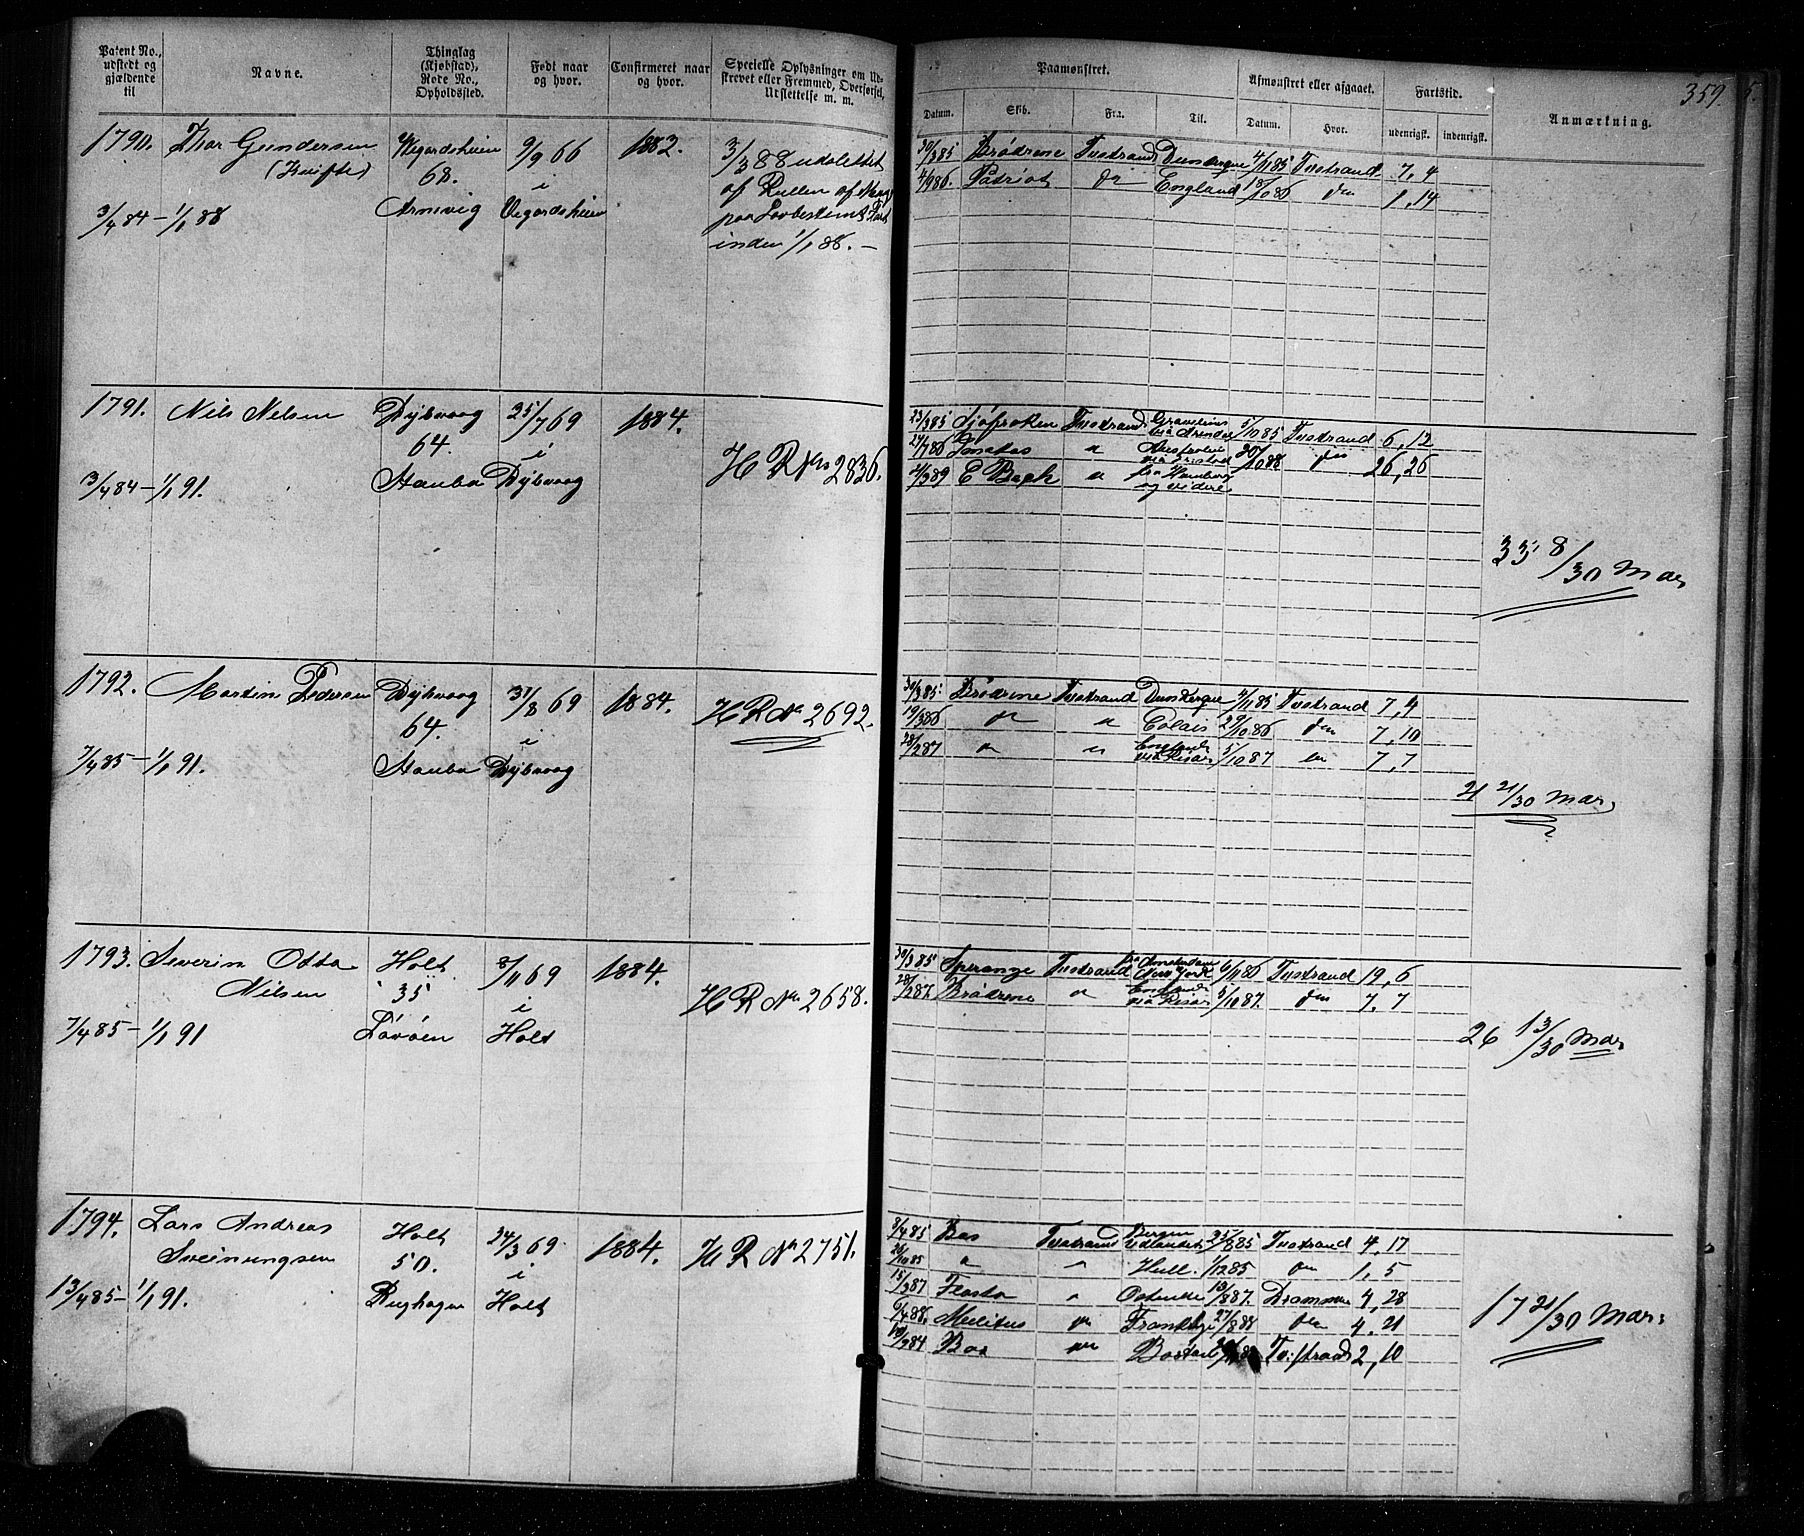 359.
Patent No., udstedt og gjældende til
Navne.
Thinglag (Kjøbstad), Rode No., Opholdssted.
Født naar og hvor.
Confirmeret naar og hvor.
Specielle Oplysninger om Udskrevet eller Fremmed, Overførsel, Udslettelse m. m.
Paamønstret.
Afmønstret eller afgaaet.
Fartstid.
Anmærkning.
Datum. Skib. Fra. Til. Datum. Hvor. udenrigsk. indenrigsk.
1790. Thor Gundersen Vegordsheien 9/9 66 1882. 3/3 88 udslettet
(Kvifte) 68. i af Rullen af Mangel
3/4 84 - 1/1 88 Arnevig Vegordsheien paa Lovbestemt Fart
inden 1/1 88. -
30/3 85 Brødrene Tvestrand Dunkerque 4/11 85 Tvestrand 7, 4
4/9 86. Patriot do England 18/10 86 do 1, 14
1791. Nils Nilsen Dybvaag 25/7 69 1884.
64. i H R No 2836.
3/4 84 - 1/1 91. Stauba Dybvaag
23/3 85 Tvestrand 5/10 85 Tvestrand 6, 12
via Arendal
27/7 86 Jonatas " 20/10 88 do 26, 26
2/3 89 E Bagh " fra Hamburg
og videre
33 8/30 Mdr
1792. Martin Pedersen Dybvaag 31/8 69 1884. H R No 2692.
64. i
7/4 85 - 1/1 91. Stauba Dybvaag
30/3 85 Brødrene Tvestrand Dunkerque 4/11 85 Tvestrand 7, 4
19/3 86 do " Calais 29/10 86 do 7, 10
28/2 87 " " England via Risør 5/10 87 do 7, 7
21 21/30 Mdr
1793. Severin Otto Holt 8/11 69 1884.
Nilsen 35 i H R No 2658.
7/4 85 - 1/1 91 Løvøen Holt
30/3 85 Sperange Tvestrand fra Amsterdam New York 6/11 86 Tvestrand 19, 6
28/2 87. Brødrene " England via Risør 5/10 87. do 7, 7
26 13/30 Mdr
1794. Lars Andreas Holt 24/3 69 1884. H R No 2751.
Sveinungsen 50. i
13/4 85 - 1/1 91. Holt
8/4 85 Boa Tvestrand Bergen Udlandet 25/8 85 Tvestrand 4, 17
26/10 85 " " Hull 1/12 85 do 1, 5
15/3 87 Flosta " Ostende 13/8 87. Drammen 4, 28
6/4 88. do 27/8 88 do 4, 21
Boa do Tvestrand 2, 10
17 21/30 Mdr